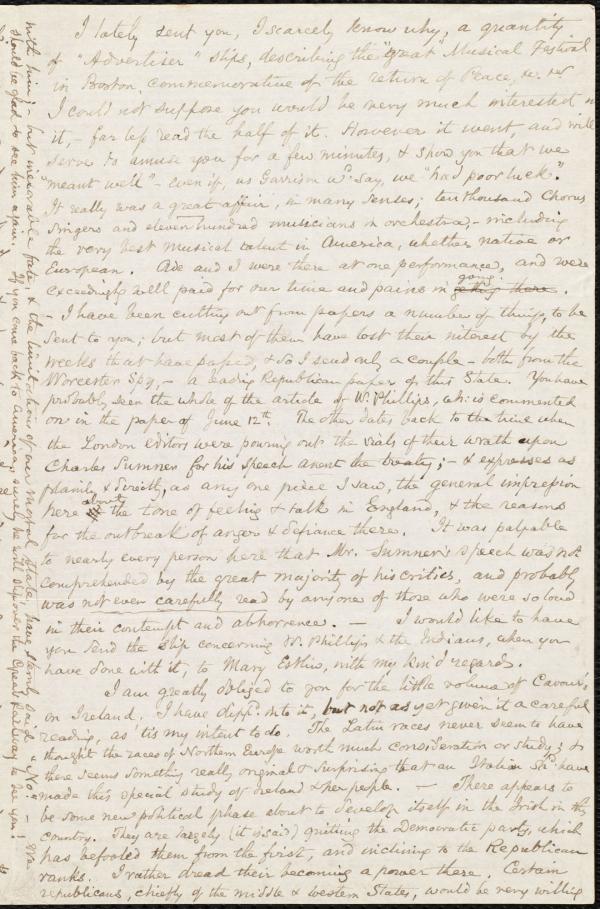 I lately sent you, I scarcely know why, a quantity
of "Advertiser" slips, describing the "great" Musical Festival
in Boston, commemorative of the return of Peace, &c. &c
I could not suppose you would be very much interested in
it, - far less read the half of it. However it went, and will
serve to amuse you for a few minutes, & show you that we
"meant well" - even if, as Garrison wd. say, we "had poor luck".
It really was a great affair, in many senses; ten thousand Chorus
Singers and eleven hundred musicians in orchestra, - including
the very best musical talent in America, whether native or
European. and I were there at one performance, and were
exceedingly well paid for our time and pains in going getting there.
- I have been cutting out from papers a number of things, to be
sent to you; but most of them have lost their interest by the
weeks that have passed, & so I send only a couple - both from the
Worcester Spy, - a leading Republican paper of this State. You have
probably seen the whole of the article of W. Phillips, wh: is commented
on in the paper of June 12th. The other dates back to the time when
the London editors were pouring out the vials of their wrath upon
Charles Sumner for his speech anent the treaty; - & expresses as
plainly & directly, as any one piece I saw, the general impression
here about the tone of feeling & talk in England, & the reasons
for the outbreak of anger & defiance there. It was palpable
to nearly every person here that Mr. Sumner's speech was not
comprehended by the great majority of his critics, and probably
was not even carefully read by anyone of those who were so loud
in their contempt and abhorrence. - I would like to have
you send the slip concerning W. Phillips & the Indians, when you
have done with it, to Mary Estlin, with my kind regards.
I am greatly obliged to you for the little volume of Cavour's,
on Ireland. I have dipp'd into it, but not as yet given it a careful
reading, as 'tis my intent to do. The Latin races never seem to have
thought the races of Northern Europe worth much consideration or study; &
there seems something really original & surprising that an Italian shd. have
made this special study of Ireland & her people. - There appears to
be some new political phase about to develop itself in the Irish in this
country. They are largely (it is said) quitting the Democratic party, which
has befooled them from the first, and inclining to the Republican
ranks. I rather dread their becoming a power there. Certain
republicans, chiefly of the middle & western States, would be very willing
with him; - but inexorable fate, & the limitations of our mortal state, have sternly said "No". - We
should be glad to see him again. If you come back to America, surely he will slip over the Great Railway to see you!